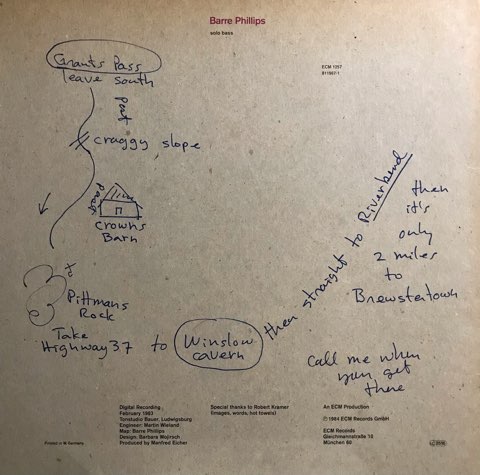 Barre Phillips
solo bass
ECM 1257
Grants Pass
leave south
past
craggy slope
Crowns
Barn
to
Pittmans
Rock
Take
Highway 37 to
Winslow
cavern
then straight to Riverbend
then
it's
only
2 miles
to
Brewstertown
Call me when
you get
there
Digital Recording
February 1983
Tonstudio Bauer, Ludwigsburg
Engineer: Martin Wieland
Map: Barre Phillips
Design: Barbara Wojirsch
Produced by Manfred Eicher
Special thanks to Robert Kramer
(images, words, hot towels)
An ECM Production
℗ 1984 ECM Records GmbH
ECM Records
Gleichmannstraße 10
München 60
Printed in W. Germany